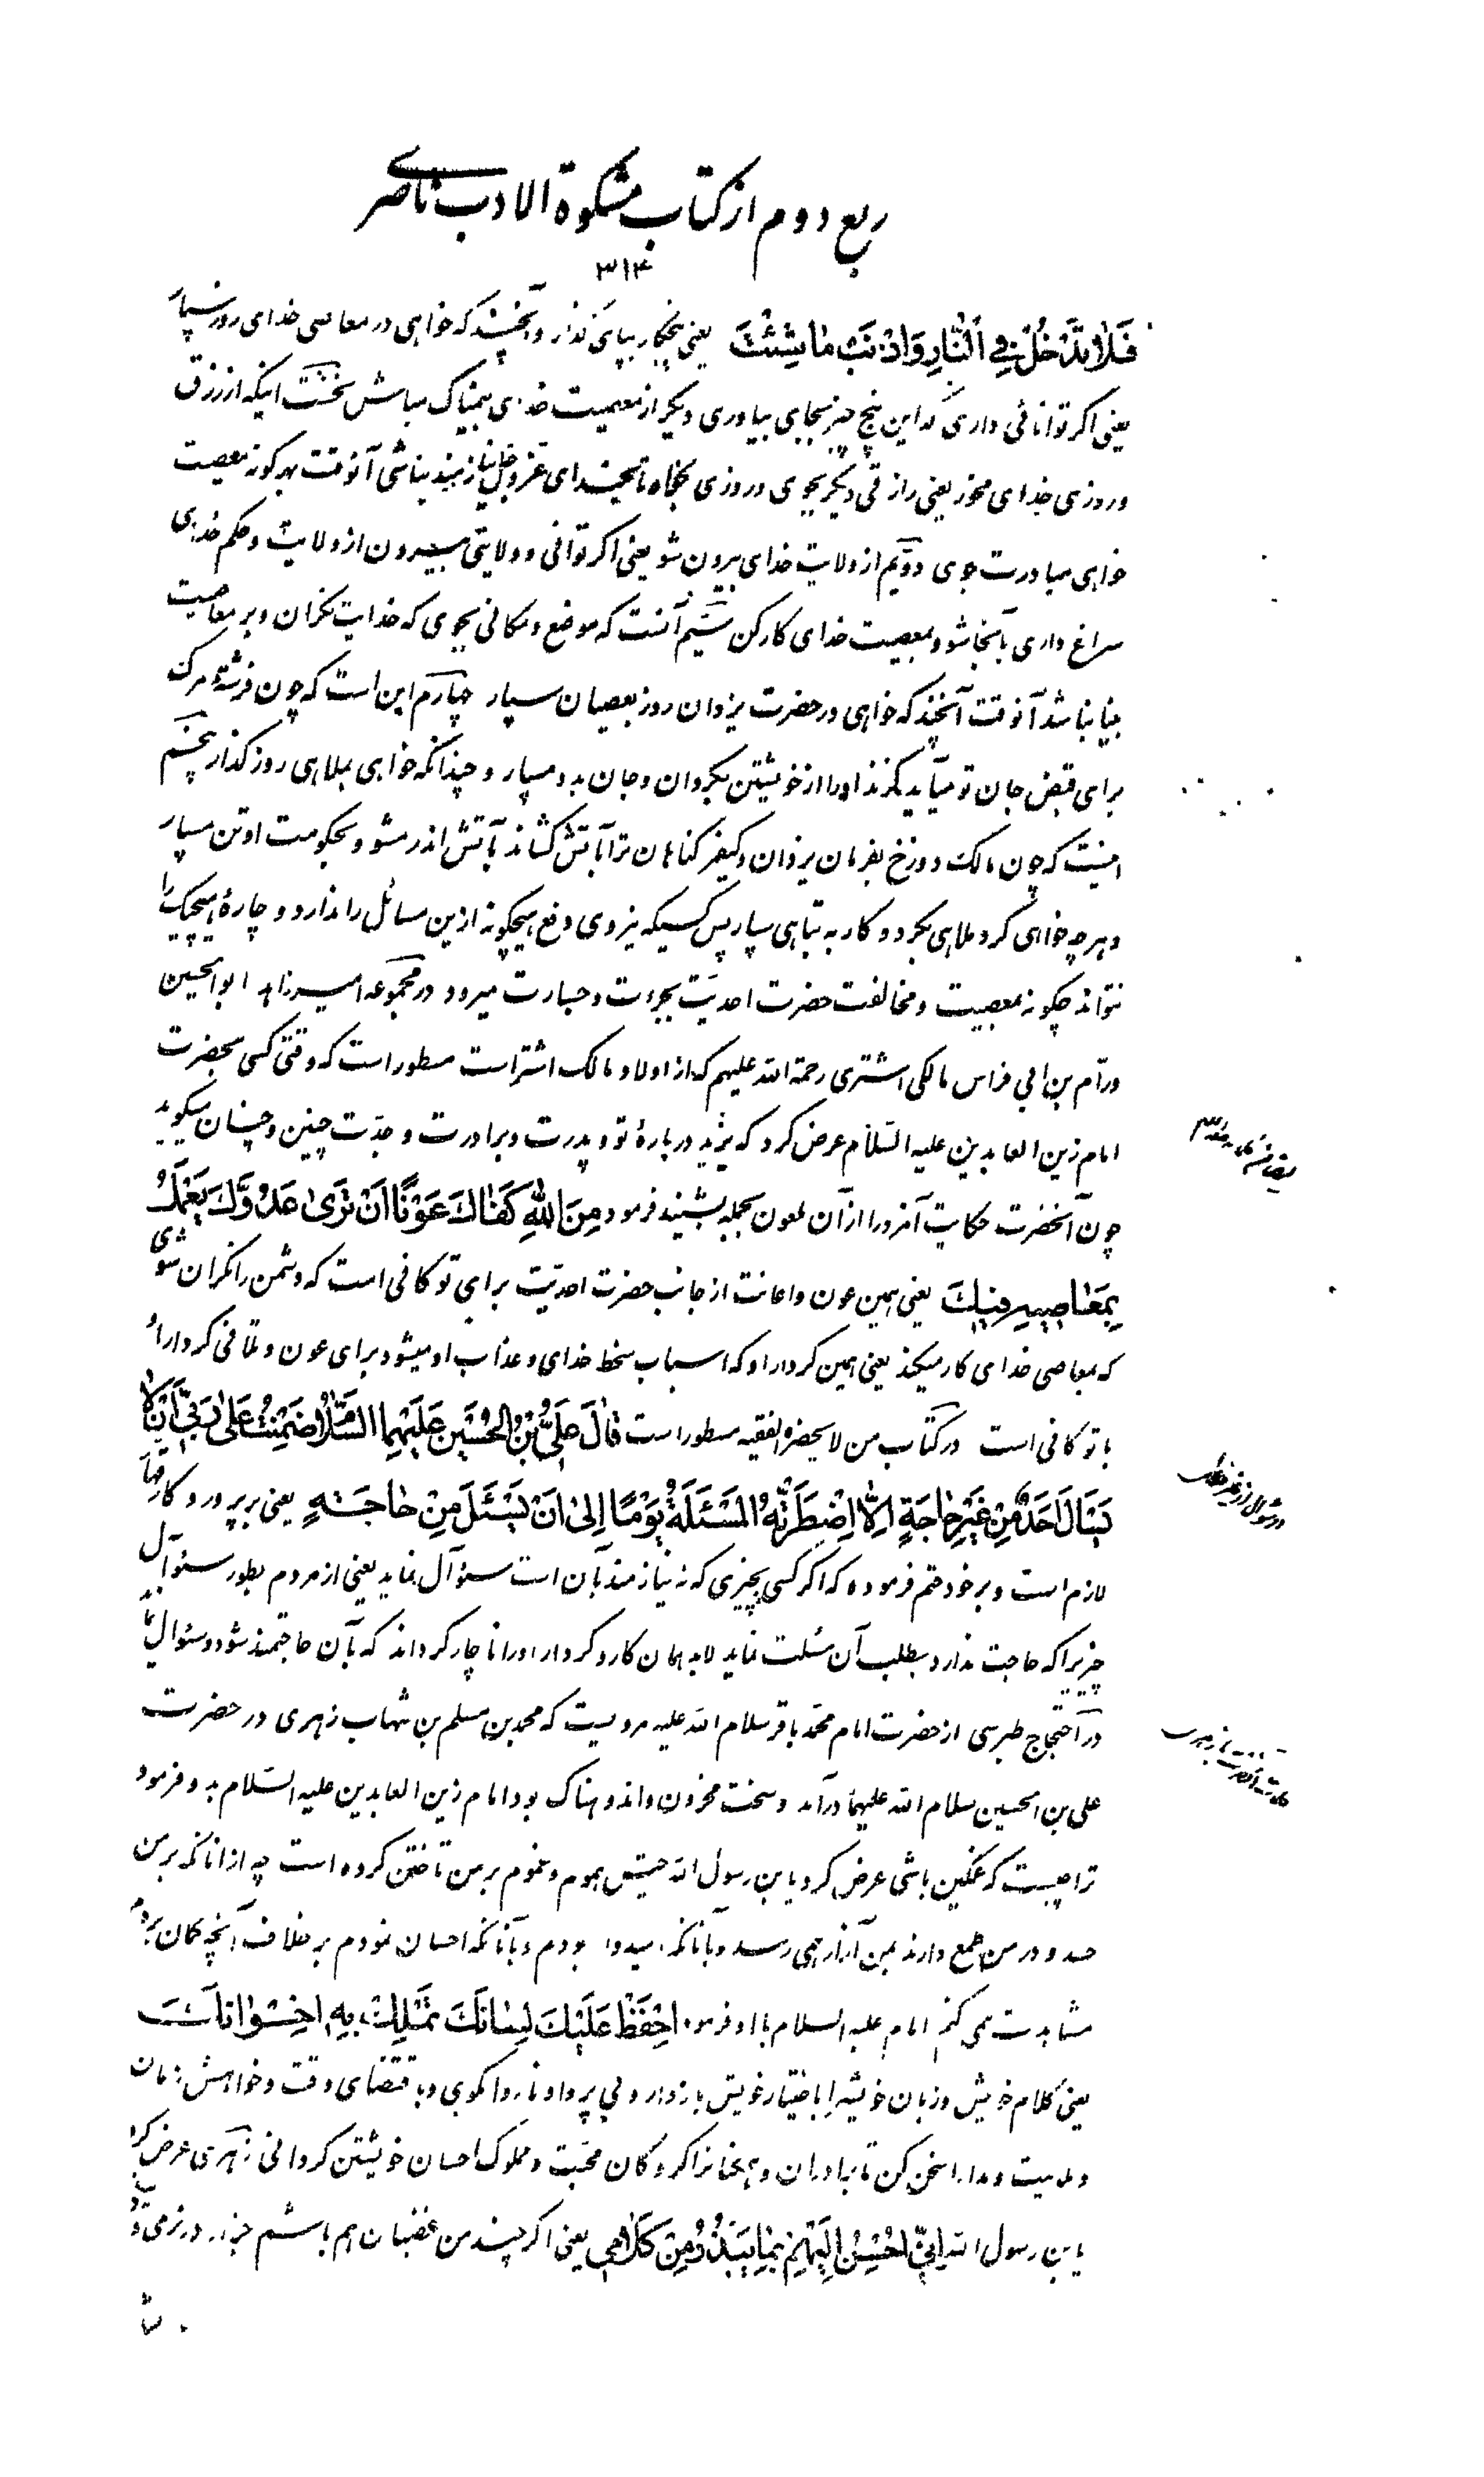 ربع دوم از کتاب مشکوة الادب ناصری
۳۱۴
فَلٰا تَدْخُلْ فِی النّٰارِ وَاذْنَبْ مٰا شِئْتَ یعنی پنجکار بپای گذار و آنچند که خواهی در معاصی خدای روز سپار
یعنی اگر توانائی داری که این پنج چیز بجای بیاوری دیگر از معصیت خدای بیمناک مباش نخست اینکه از رزق
و روزی خدای مخور یعنی رازقی دیگر بجوی و روزی بخواه تا بخدای عزوجل نیازمند نباشی آنوقت بهرگونه معصیت
خواهی مبادرت جوی دویم از ولایت خدای بیرون شو یعنی اگر توانی و ولایتی بیرون از ولایت و حکم خدای
سراغ داری بآنجا شو و بمعصیت خدای کار کن سیم آنست که موضع و مکانی بجوی که خدایت نگران و بر معاصیت
بینا نباشد آنوقت آنچند که خواهی در حضرت یزدان روز بعصیان سپار چهارم این است که چون فرشتهٔ مرک
برای قبض جان تو میآید بگزند او را از خویشتن بگردان و جان بدو مسپار و چندانکه خواهی بملاهی روز گذار پنجم
اینست که چون مالک دوزخ بفرمان یزدان و کیفر گناهان ترا بآتش کشاند بآتش اندر مشو و بحکومت او تن مسپار
و هر چه خواهی گرد ملاهی بگرد و کار به تباهی سپار پس کسیکه نیروی دفع هیچگونه ازین مسائل را ندارد و چارهٔ هیچیک را
نتواند چگونه بمعصیت و مخالفت حضرت احدیت بجرءت و جسارت میرود در مجموعه امیر زاهد ابوالحسین
ورّام بن ابی فراس مالکی اشتری رحمة الله علیهم که از اولاد مالک اشتر است مسطور است که وقتی کسی بحضرت
امام زین العابدین علیه السّلام عرض کرد که یزید دربارهٔ تو و پدرت و برادرت و جدّت چنین و چنان میگوید
چون آنحضرت حکایت آنمرد را از آن ملعون بجمله بشنید فرمود مِنَ اللّٰهِ کَفٰاكَ عَوْنًا اَنْ تَرَیٰ عَدُوَّكَ یَعْمَلُ
بِمَعٰاصِیهِ فِیكَ یعنی همین عون و اعانت از جانب حضرت احدیّت برای تو کافی است که دشمن را نگران شوی
که بمعاصی خدای کار میکند یعنی همین کردار او که اسباب سخط خدای و عذاب او میشود برای عون و تلافی کردار او
با تو کافی است در کتاب من لا یحضره الفقیه مسطور است قٰالَ عَلِیُّ بْنُ الْحُسَیْنِ عَلَیْهِمَا السَّلٰامُ ضَمِنْتُ عَلیٰ رَبّی اَنْ لٰا
یَسْألَ اَحَدٌ مِنْ غَیْرِ حٰاجَةٍ اِلّٰا اضْطَرَّتْهُ الْمَسْئَلَةُ یَوْمًا اِلیٰ اَنْ یَسْئَلَ مِنْ حٰاجَتِهِ یعنی بر پرورد کار
لازم است و بر خود حتم فرموده که اگر کسی بچیزی که نه نیازمند بآن است سئوال نماید یعنی از مردم بطور سئوال
چیزیرا که حاجت ندارد بطلب آن مسئلت نماید لابد همان کار و کردار او را ناچار گرداند که بآن حاجتمند شود و سئوال نماید
در احتجاج طبرسی از حضرت امام محمّد باقر سلام الله علیه مرویست که محمد بن مسلم بن شهاب زهری در حضرت
علی بن الحسین سلام الله علیهما درآمد و سخت محزون و اندوهناک بود امام زین العابدین علیه السّلام بدو فرمود
ترا چیست که غمگین باشی عرض کرد یابن رسول الله جیش هموم و غموم بر من تاختن کرده است چه از انانکه بر من
حسد و در من طمع دارند بمن آزار همی رسد و بآنانکه امیدوار بودم و بآنانکه احسان نمودم بر خلاف آنچه گمان بردم
مشاهدت همی کنم امام علیه السلام با او فرمود اِحْفَظْ عَلَیْكَ لِسٰانَكَ تَمْلِكْ بِهِ اِخْوٰانَكَ
یعنی کلام خویش و زبان خویش را باختیار خویش بازدار و بی پروا و ناروا مگوی و باقتضای وقت و خواهش زمان
و ملامیت و مدارا سخن کن تا برادران و همگنانرا گروگان محبّت و مملوک احسان خویشتن گردانی زهری عرض کرد
یابن رسول الله اِنّی اُحْسِنُ اِلَیْهِمْ بِمٰا یَبْدُرُ مِنْ کَلٰامی یعنی اگر چند من غضبان هم باشم جز در نرمی و